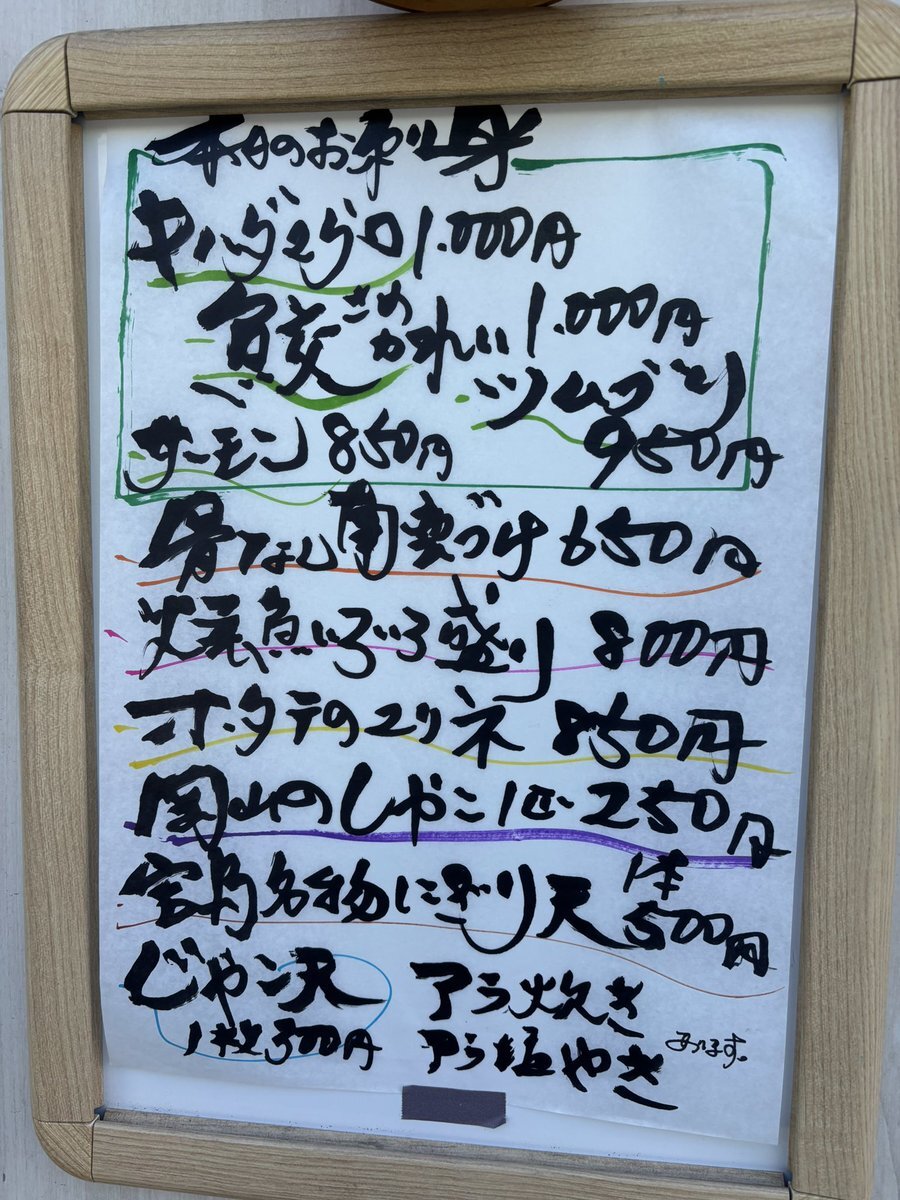 本日のお刺り身
キハダマグロ 1.000円
鮫さめかれい 1.000円
ツムブリ
サーモン 850円 950円
骨なし南蛮づけ 650円
煮魚いろいろ盛り 800円
ホタテのマリネ 850円
岡山のしゃこ 1匹 250円
名物にぎり天 1本 500円
じゃこ天 アラ炊き
1枚 300円 アラ塩やき あります。